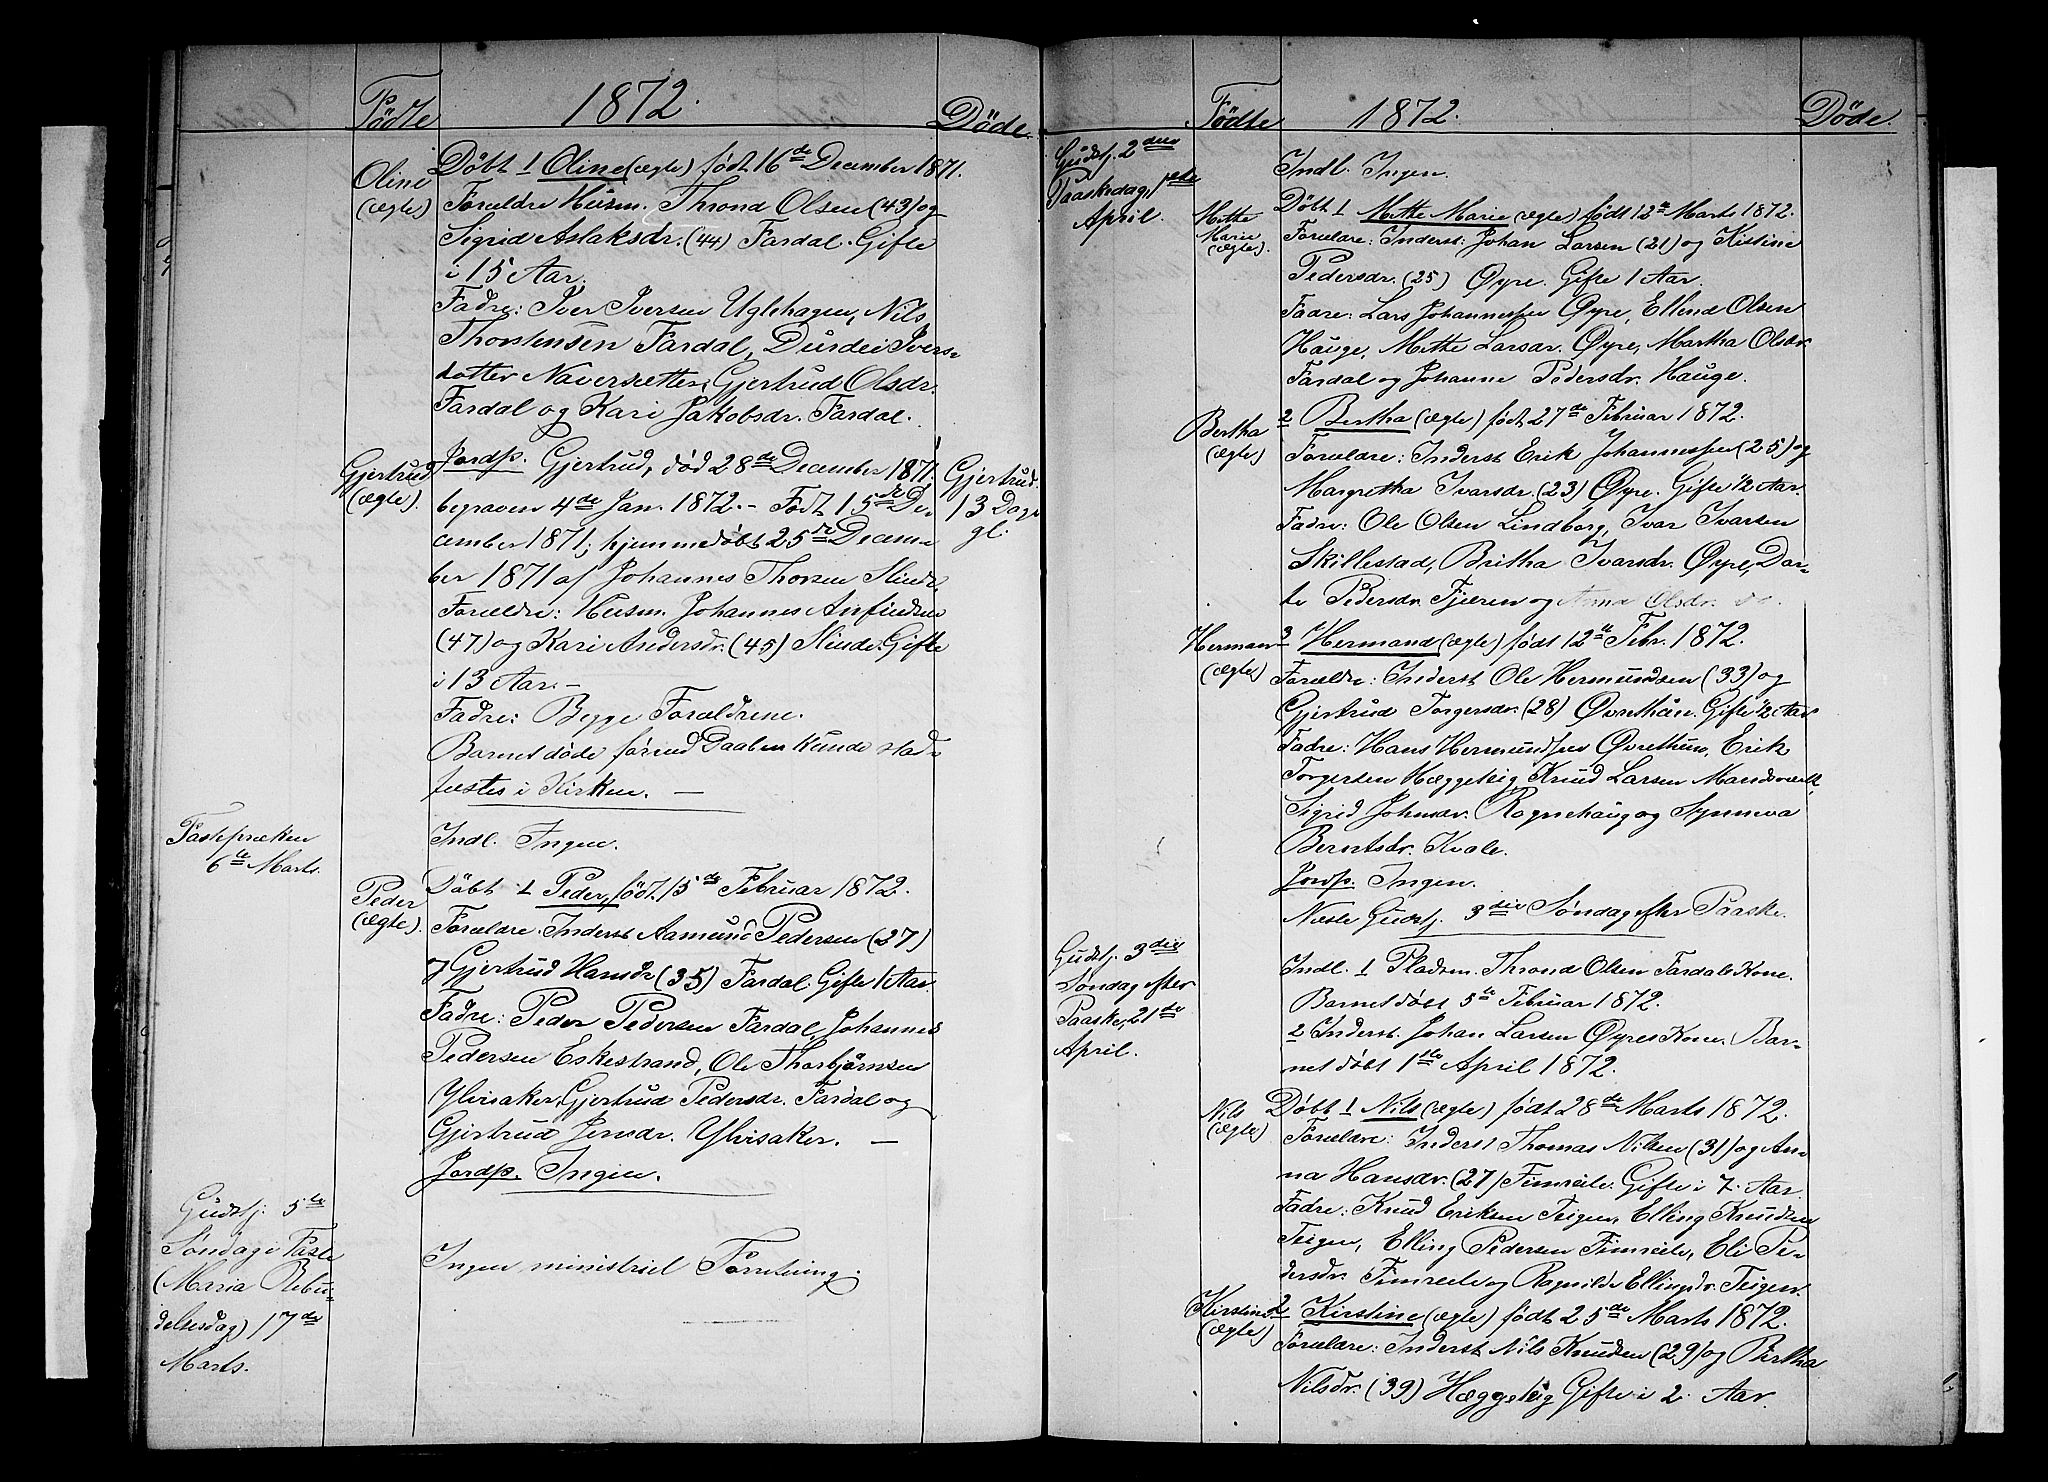 Fødte
1872.
Döde.
Oline
(ægte)
Döbt 1 Oline (ægte) født 16de December 1871.
Forældre Husm. Thrond Olsen (43) og
Sigrid Aslaksdr. (44) Fardal. Gifte
i 15 Aar.
Fadre: Iver Iversen Uglehagen, Nils
Thorstensen Fardal, Durdei Ivers-
dotter Naversætter, Gjertrud Olsdr.
Fardal og Kari Jakobsdr. Fardal.
Gjertrud
(ægte).
Jordp. Gjertrud, død 28de December 1871.
begraven 4de Jan. 1872. - Født 15de De-
cember 1871, hjemmedøbt 25de Decem-
ber 1871 af Johannes Thorsen Slinde.
Forældre: Husm. Johannes Anfindsen
(47) og Kari Andersdr. (45) Slinde. Gifte
i 13 Aar. -
Fadre: Begge Forældrene.
Barnet døde førend Daaben kunde stad-
fæstes i Kirken. -
Gjertrud
13 Dage
gl.
Fastepræken
6te Marts.
Indl. Ingen.
Peder
(ægte).
Döbt 1 Peder, født 15de Februar 1872.
Forældre Inderst Aamund Pedersen (27)
og Gjertrud Hansdr (35) Fardal. Gifte 1 Aar.
Fadre: Peder Pedersen Fardal, Johannes
Pedersen Eskestrand, Ole Thorbjørnsen
Ylvisaker, Gjertrud Pedersdr. Fardal og
Gjertrud Jensdr. Ylvisaker. -
Jordp. Ingen.
Gudstj. 5te
Søndag i Faste
(Maria Bebu-
delsesdag) 17de
Marts.
Ingen ministriel Forretning.
Fødte
1872.
Döde.
Gudstj. 2den
Paaskedag, 1ste
April.
Indl. Ingen.
Mette
Marie
(ægte).
Döbt 1 Mette Marie (ægte) født 12te Marts 1872.
Forældre: Inderst: Johan Larsen (21) og Kistine
Pedersdr. (25) Øyre. Gifte 1 Aar.
Fadre: Lars Johannessen Øyre, Ellend Olsen
Hauge, Mette Larsdr. Øyre, Martha Olsdr.
Fardal og Johanne Pedersdr. Hauge.
Bertha
(ægte)
2 Bertha (ægte) født 27de Februar 1872.
Forældre: Inderst Erik Johannessen (25) og
Margretha Ivarsdr. (23) Øyre. Gifte 1/2 Aar.
Fadre: Ole Olsen Lindborg, Ivar Ivarsen
Skillestad, Britha Ivarsdr. Øyre, Dor-
te Pedersdr. Fjæren og Anna Olsdr. do.
Herman
(ægte)
3 Hermand (ægte) født 12te Febr. 1872.
Forældre: Inderst Ole Hermundsen (33) og
Gjertrud Torgersdr. (28) Øvrethun. Gifte 1/2 Aar
Fadre: Hans Hermundsen Øvrethun, Erik
Torgersen Hæggelvig, Knud Larsen
Sigrid Johnsdr. Rognehaug og Synneva
Berntsdr. Kvale.
Jordp. Ingen.
Næste Gudstj. 3die Søndag efter Paaske.
Gudstj. 3die
Søndag efter
Paaske, 21de
April.
Indl. 1 Pladsm. Thrond Olsen Fardals Kone.
Barnet døbt 5te Februar 1872.
2 Inderst. Johan Larsen Øyres Kone. Bar-
net døbt 1ste April 1872.
Nils
(ægte)
Döbt 1 Nils (ægte) født 28de Marts 1872.
Forældre: Inderst Thomas Nilsen (31) og An-
na Hansdr. (27) Fimreite. Gifte i 7 Aar.
Fadre: Knud Eriksen Teigen, Elling Knudsen
Teigen, Elling Pedersen Fimreite, Eli Pe-
dersdr. Fimreite og Ragnilde Ellingsdr. Teigen.
Kirstine
(ægte)
2 Kirstine (ægte) født 25de Marts 1872.
Forældre: Inderst Nils Knudsen (29) og Bertha
Nilsdr. (39) Hæggelvig Gifte i 2 Aar.